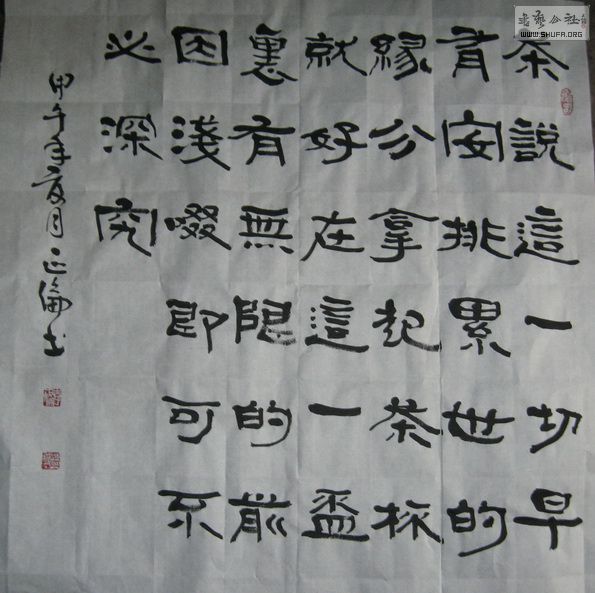 茶說這一切早
有安排累世的
緣分拿起茶杯
就好在這一盃
裏有無限的前
因淺啜即可不
必深究
甲午年夏月正倫书
WWW.SHUFA.ORG